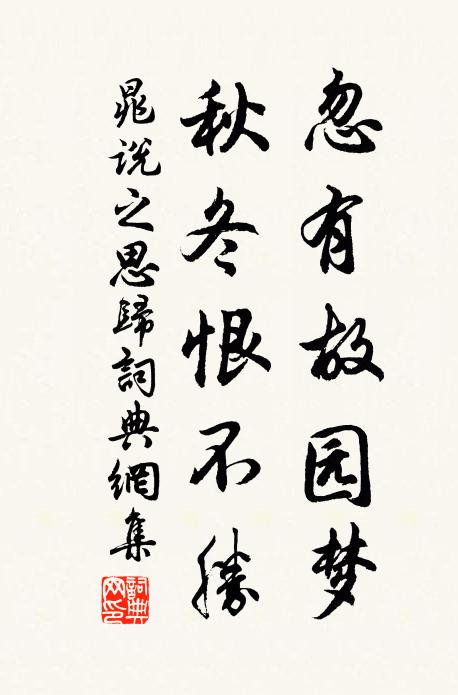 忽有故园梦
秋冬恨不勝
晁説之思歸詞典網集
詞典網印